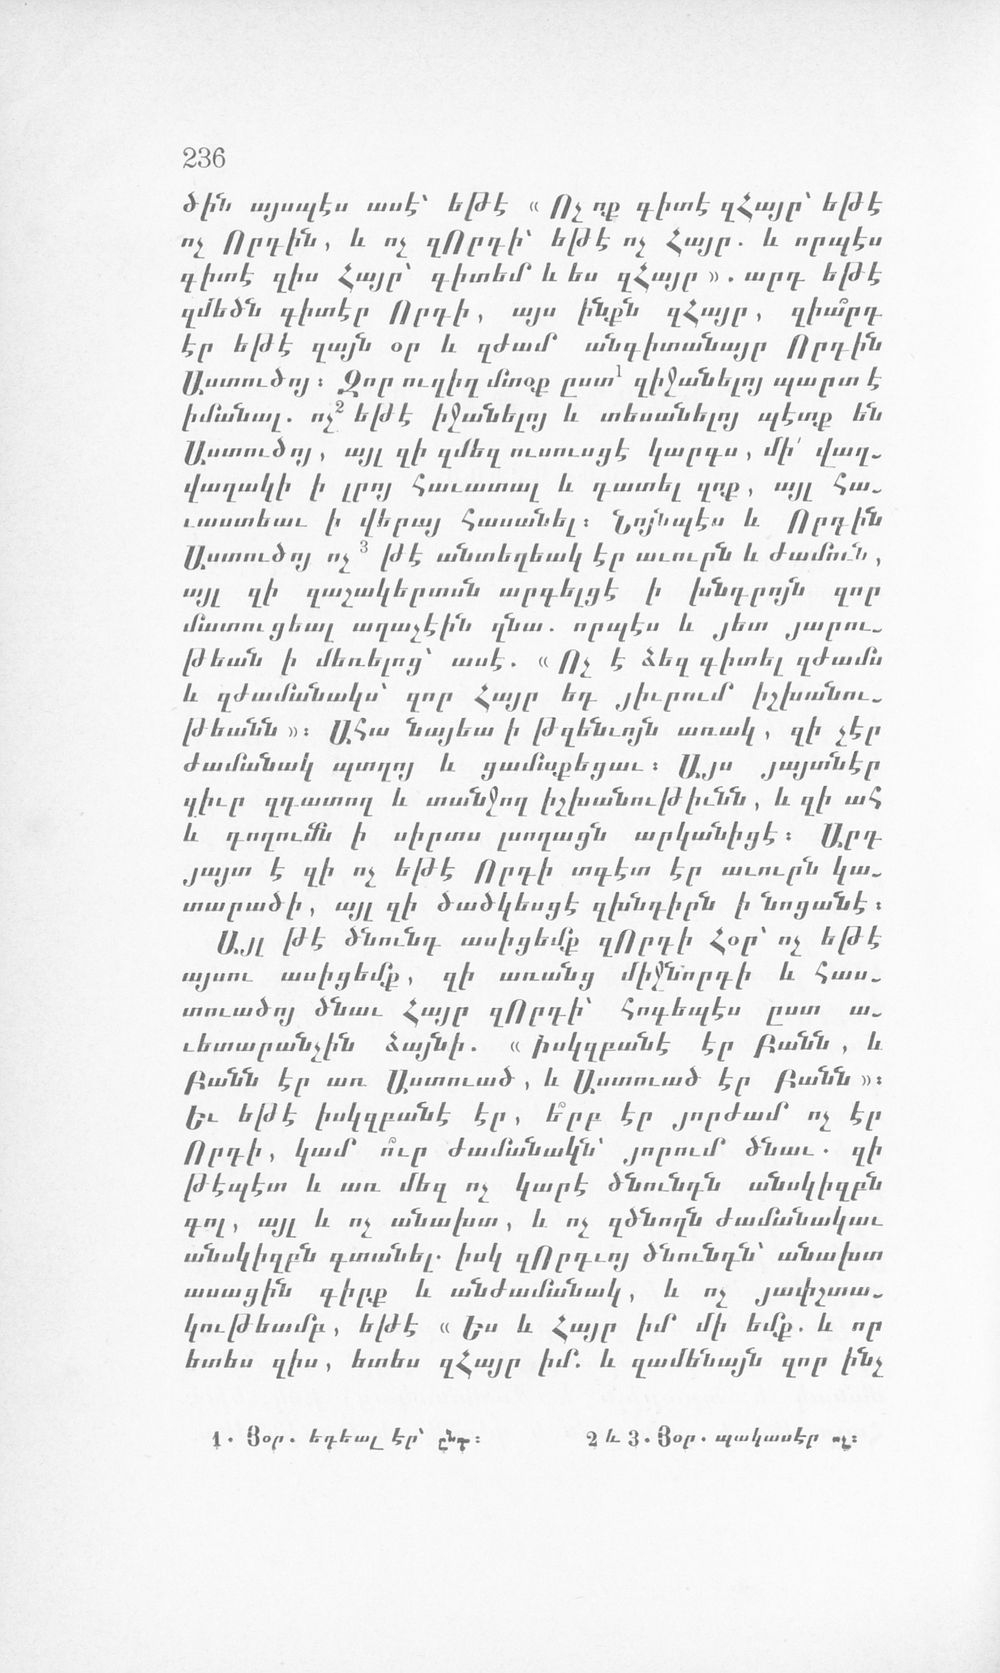 236
ծին այսպէս ասէ՝ եթէ « Ոչ ոք գիտէ զՀայր՝ եթէ
ոչ Որդին, և ոչ զՈրդի՝ եթէ ոչ Հայր. և որպէս
գիտէ զիս Հայր՝ գիտեմ և ես զՀայր ». արդ եթէ
զմեծն գիտէր Որդի, այս ինքն զՀայր, զիա՞րդ
էր եթէ զայն օր և զժամ անգիտանայր Որդին
Աստուծոյ։ Զոր ուղիղ մտօք ըստ¹ զիջանելոյ պարտ է
իմանալ. ոչ² եթէ իջանելոյ և տեսանելոյ պէտք են
Աստուծոյ, այլ զի զմեզ ուսուսցէ կարգս, մի՛ վաղ֊
վաղակի ի լրոյ հաւատալ և դատել զոք, այլ հա֊
ւաստեաւ ի վերայ հասանել։ Նոյնպէս և Որդին
Աստուծոյ ոչ³ թէ անտեղեակ էր աւուրն և ժամուն,
այլ զի զաշակերտսն արգելցէ ի խնդրոյն զոր
մատուցեալ աղաչէին զնա. որպէս և յետ յարու֊
թեան ի մեռելոց՝ ասէ. « Ոչ է ձեզ գիտել զժամս
և զժամանակս՝ զոր Հայր եդ յիւրում իշխանու֊
թեանն »։ Ահա նայեա ի թզենւոյն առակ, զի չէր
ժամանակ պտղոյ և ցամաքեցաւ։ Այս յայտնէր
զիւր զդատող և տանջող իշխանութիւնն, և զի ահ
և դողումն ի սիրտս լսողացն արկանիցէ։ Արդ
յայտ է զի ոչ եթէ Որդի տգէտ էր աւուրն կա֊
տարածի, այլ զի ծածկեսցէ զխնդիրն ի նոցանէ։
Այլ թէ ծնունդ ասիցեմք զՈրդի Հօր՝ ոչ եթէ
այսու ասիցեմք, զի առանց միջնորդի և հաս֊
տուածոյ ծնաւ Հայր զՈրդի՝ հոգեպէս ըստ ա֊
ւետարանչին ձայնի. « Իսկզբանէ էր Բանն, և
Բանն էր առ Աստուած, և Աստուած էր Բանն »։
Եւ եթէ իսկզբանէ էր, ե՞րբ էր յորժամ ոչ էր
Որդի, կամ ո՞ւր ժամանակն՝ յորում ծնաւ. զի
թէպէտ և առ մեզ ոչ կարէ ծնունդն անսկիզբն
գոլ, այլ և ոչ անախտ, և ոչ զծնողն ժամանակաւ
անսկիզբն գտանել. իսկ զՈրդւոյ ծնունդն՝ անախտ
ասացին գիրք և անժամանակ, և ոչ յափշտա֊
կութեամբ, եթէ « Ես և Հայր իմ մի եմք. և որ
ետես զիս, ետես զՀայր իմ. և զամենայն զոր ինչ
1. Յօր. եդեալ էր՝ ընդ։ 2 և 3. Յօր. պակասէր ոչ։